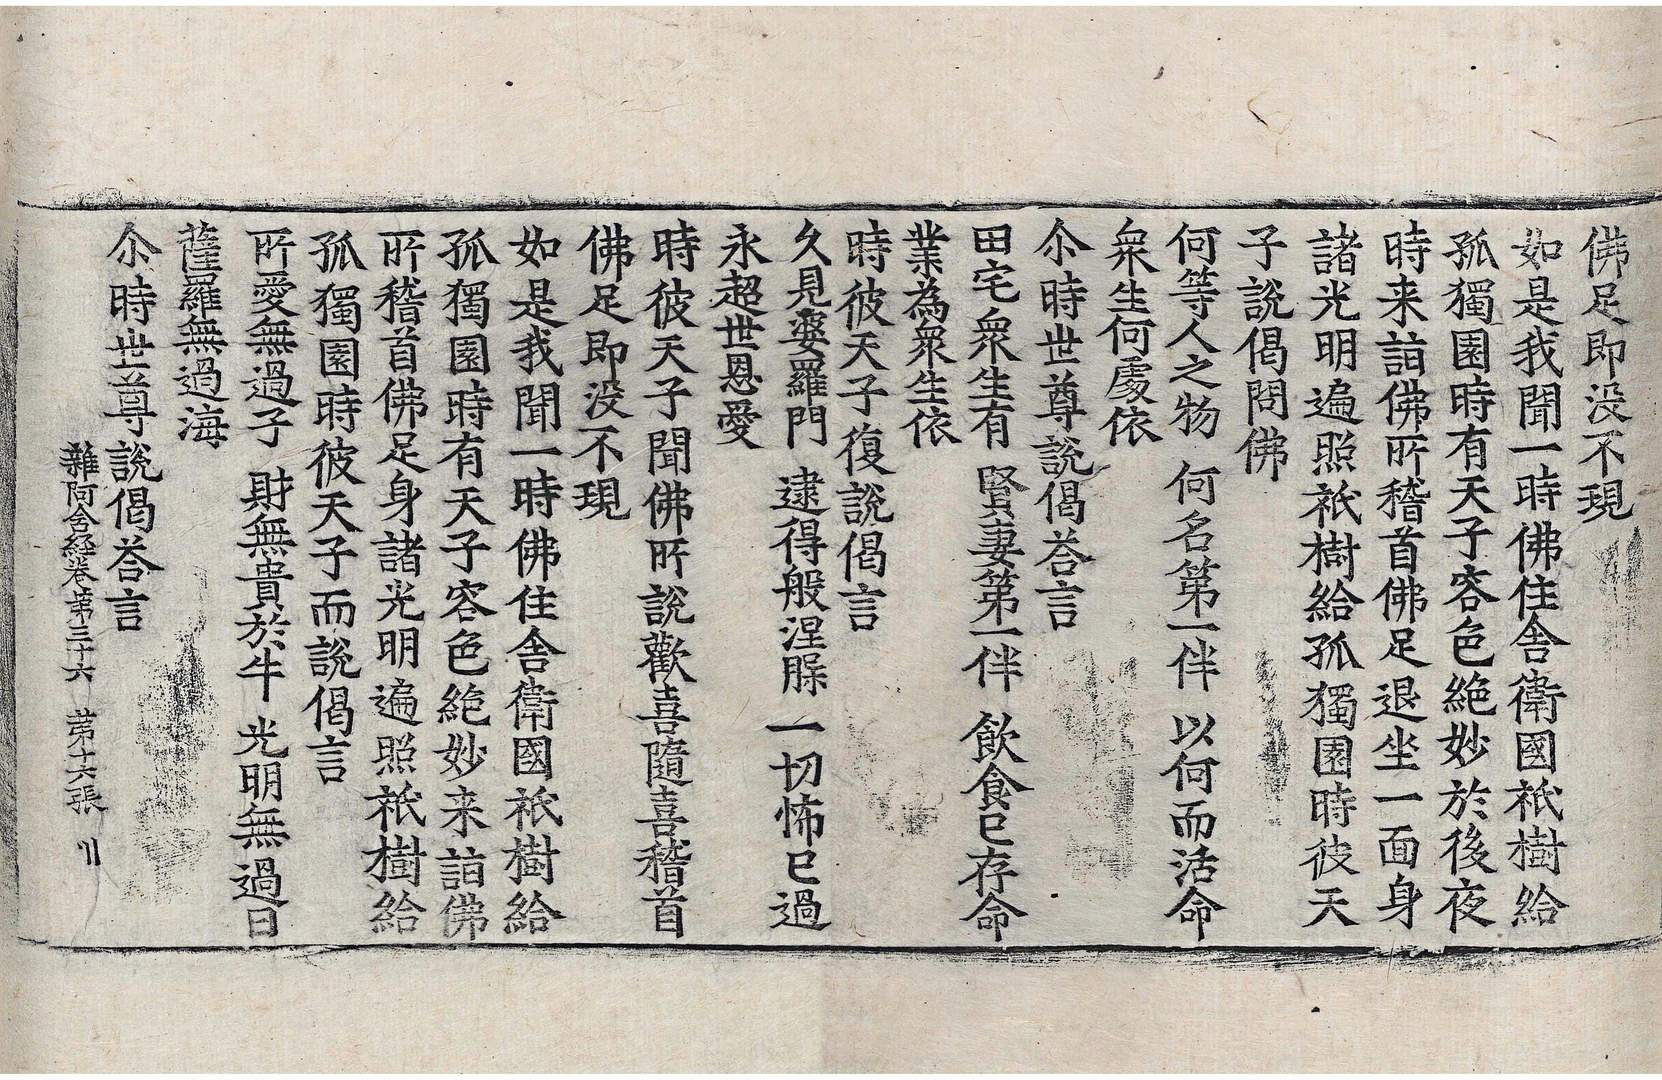 佛足即没不現
如是我聞一時佛住舍衛國祇樹給
孤獨園時有天子容色絶妙於後夜
時来詣佛所稽首佛足退坐一面身
諸光明遍照祇樹給孤獨園時彼天
子說偈問佛
何等人之物 何名第一伴 以何而活命
衆生何處依
尒時世尊說偈荅言
田宅衆生有 賢妻第一伴 飲食已存命
業為衆生依
時彼天子復說偈言
久見婆羅門 逮得般涅槃 一切怖已過
永超世恩愛
時彼天子聞佛所說歡喜隨喜稽首
佛足即没不現
如是我聞一時佛住舍衛國祇樹給
孤獨園時有天子容色絶妙来詣佛
所稽首佛足身諸光明遍照祇樹給
孤獨園時彼天子而說偈言
所愛無過子 財無貴於牛 光明無過日
薩羅無過海
尒時世尊說偈荅言
雜阿含經卷第三十六 苐十六張